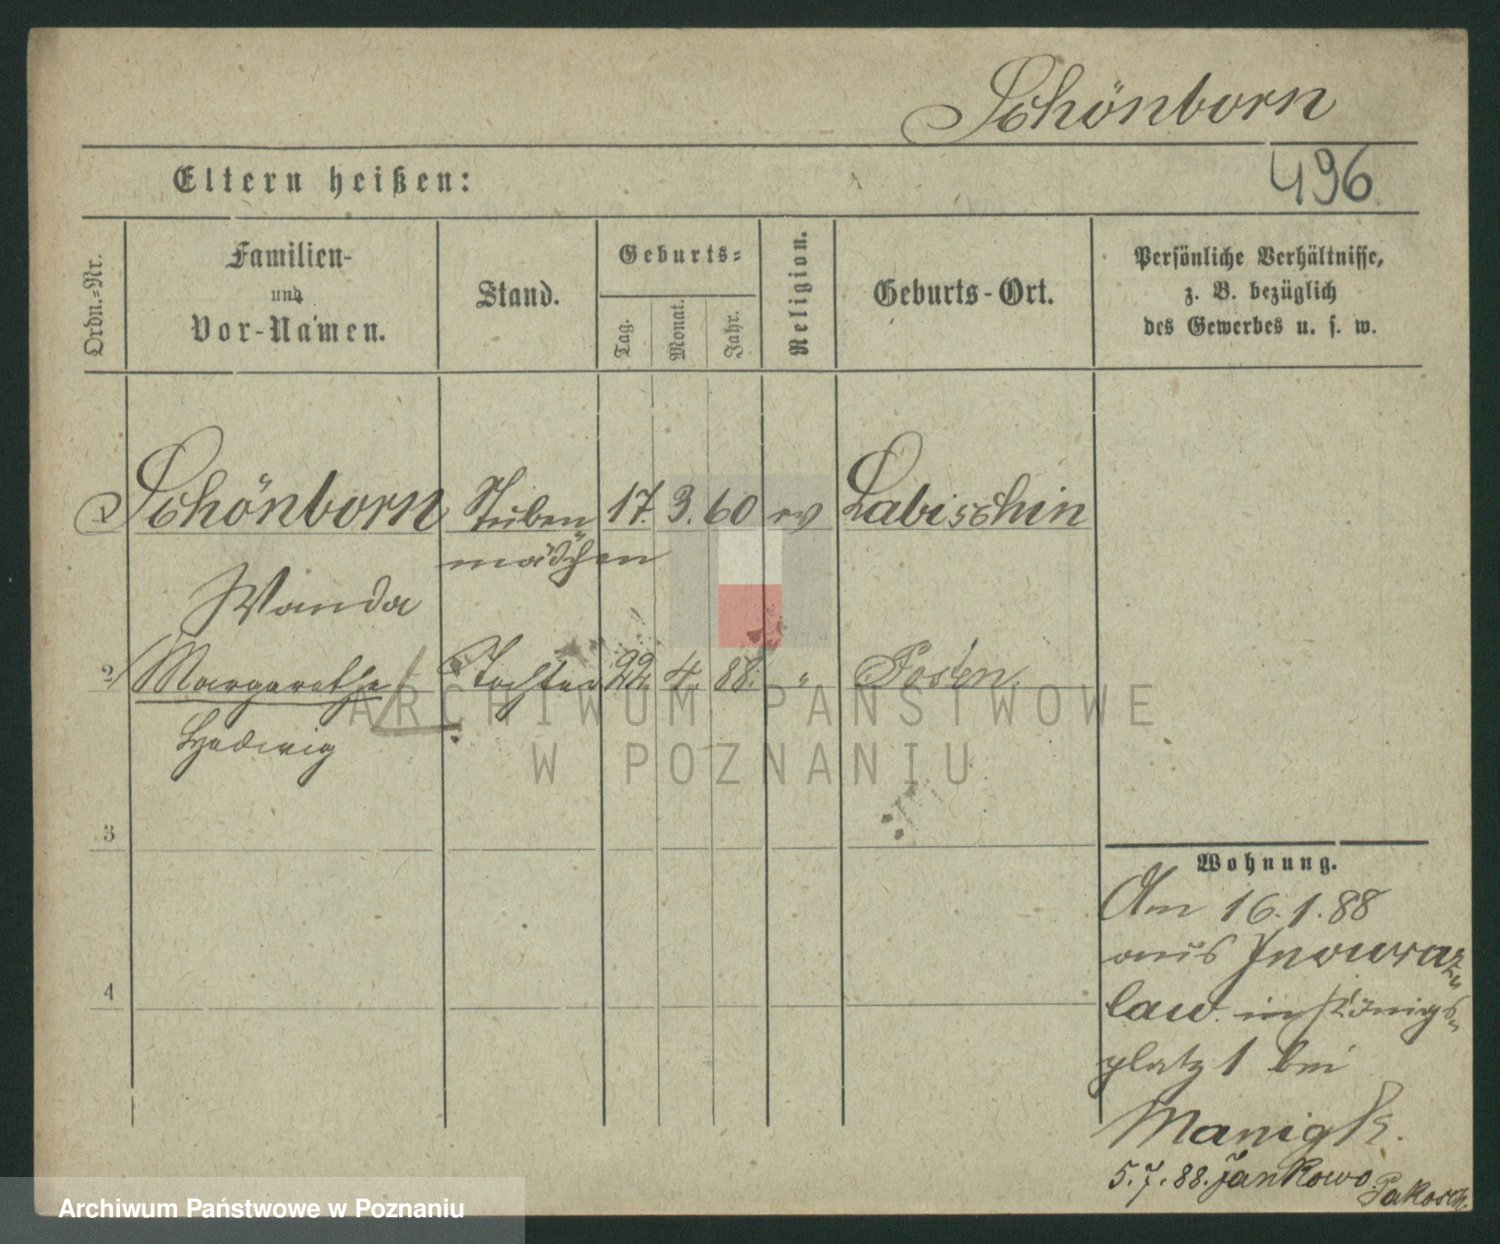 Schönborn
Eltern heißen:
496
Ordn.-Nr.
Familien-
und
Vor-Namen.
Stand.
Geburts-
Tag.
Monat.
Jahr.
Religion.
Geburts-Ort.
Persönliche Verhältnisse,
z. B. bezüglich
des Gewerbes u. s. w.
1 Schönborn Stuben 17. 3. 60 ev Labischin
mädchen
Wanda
2 Margarethe Tochter 22. 4. 88. " Posen.
Hedwig
3
4
Wohnung.
Am 16.1.88
aus Inowraz-
law. in Königs-
platz 1 bei
Manigk.
5.7.88. Jankowo Pakosch.
ARCHIWUM PAŃSTWOWE
W POZNANIU
Archiwum Państwowe w Poznaniu